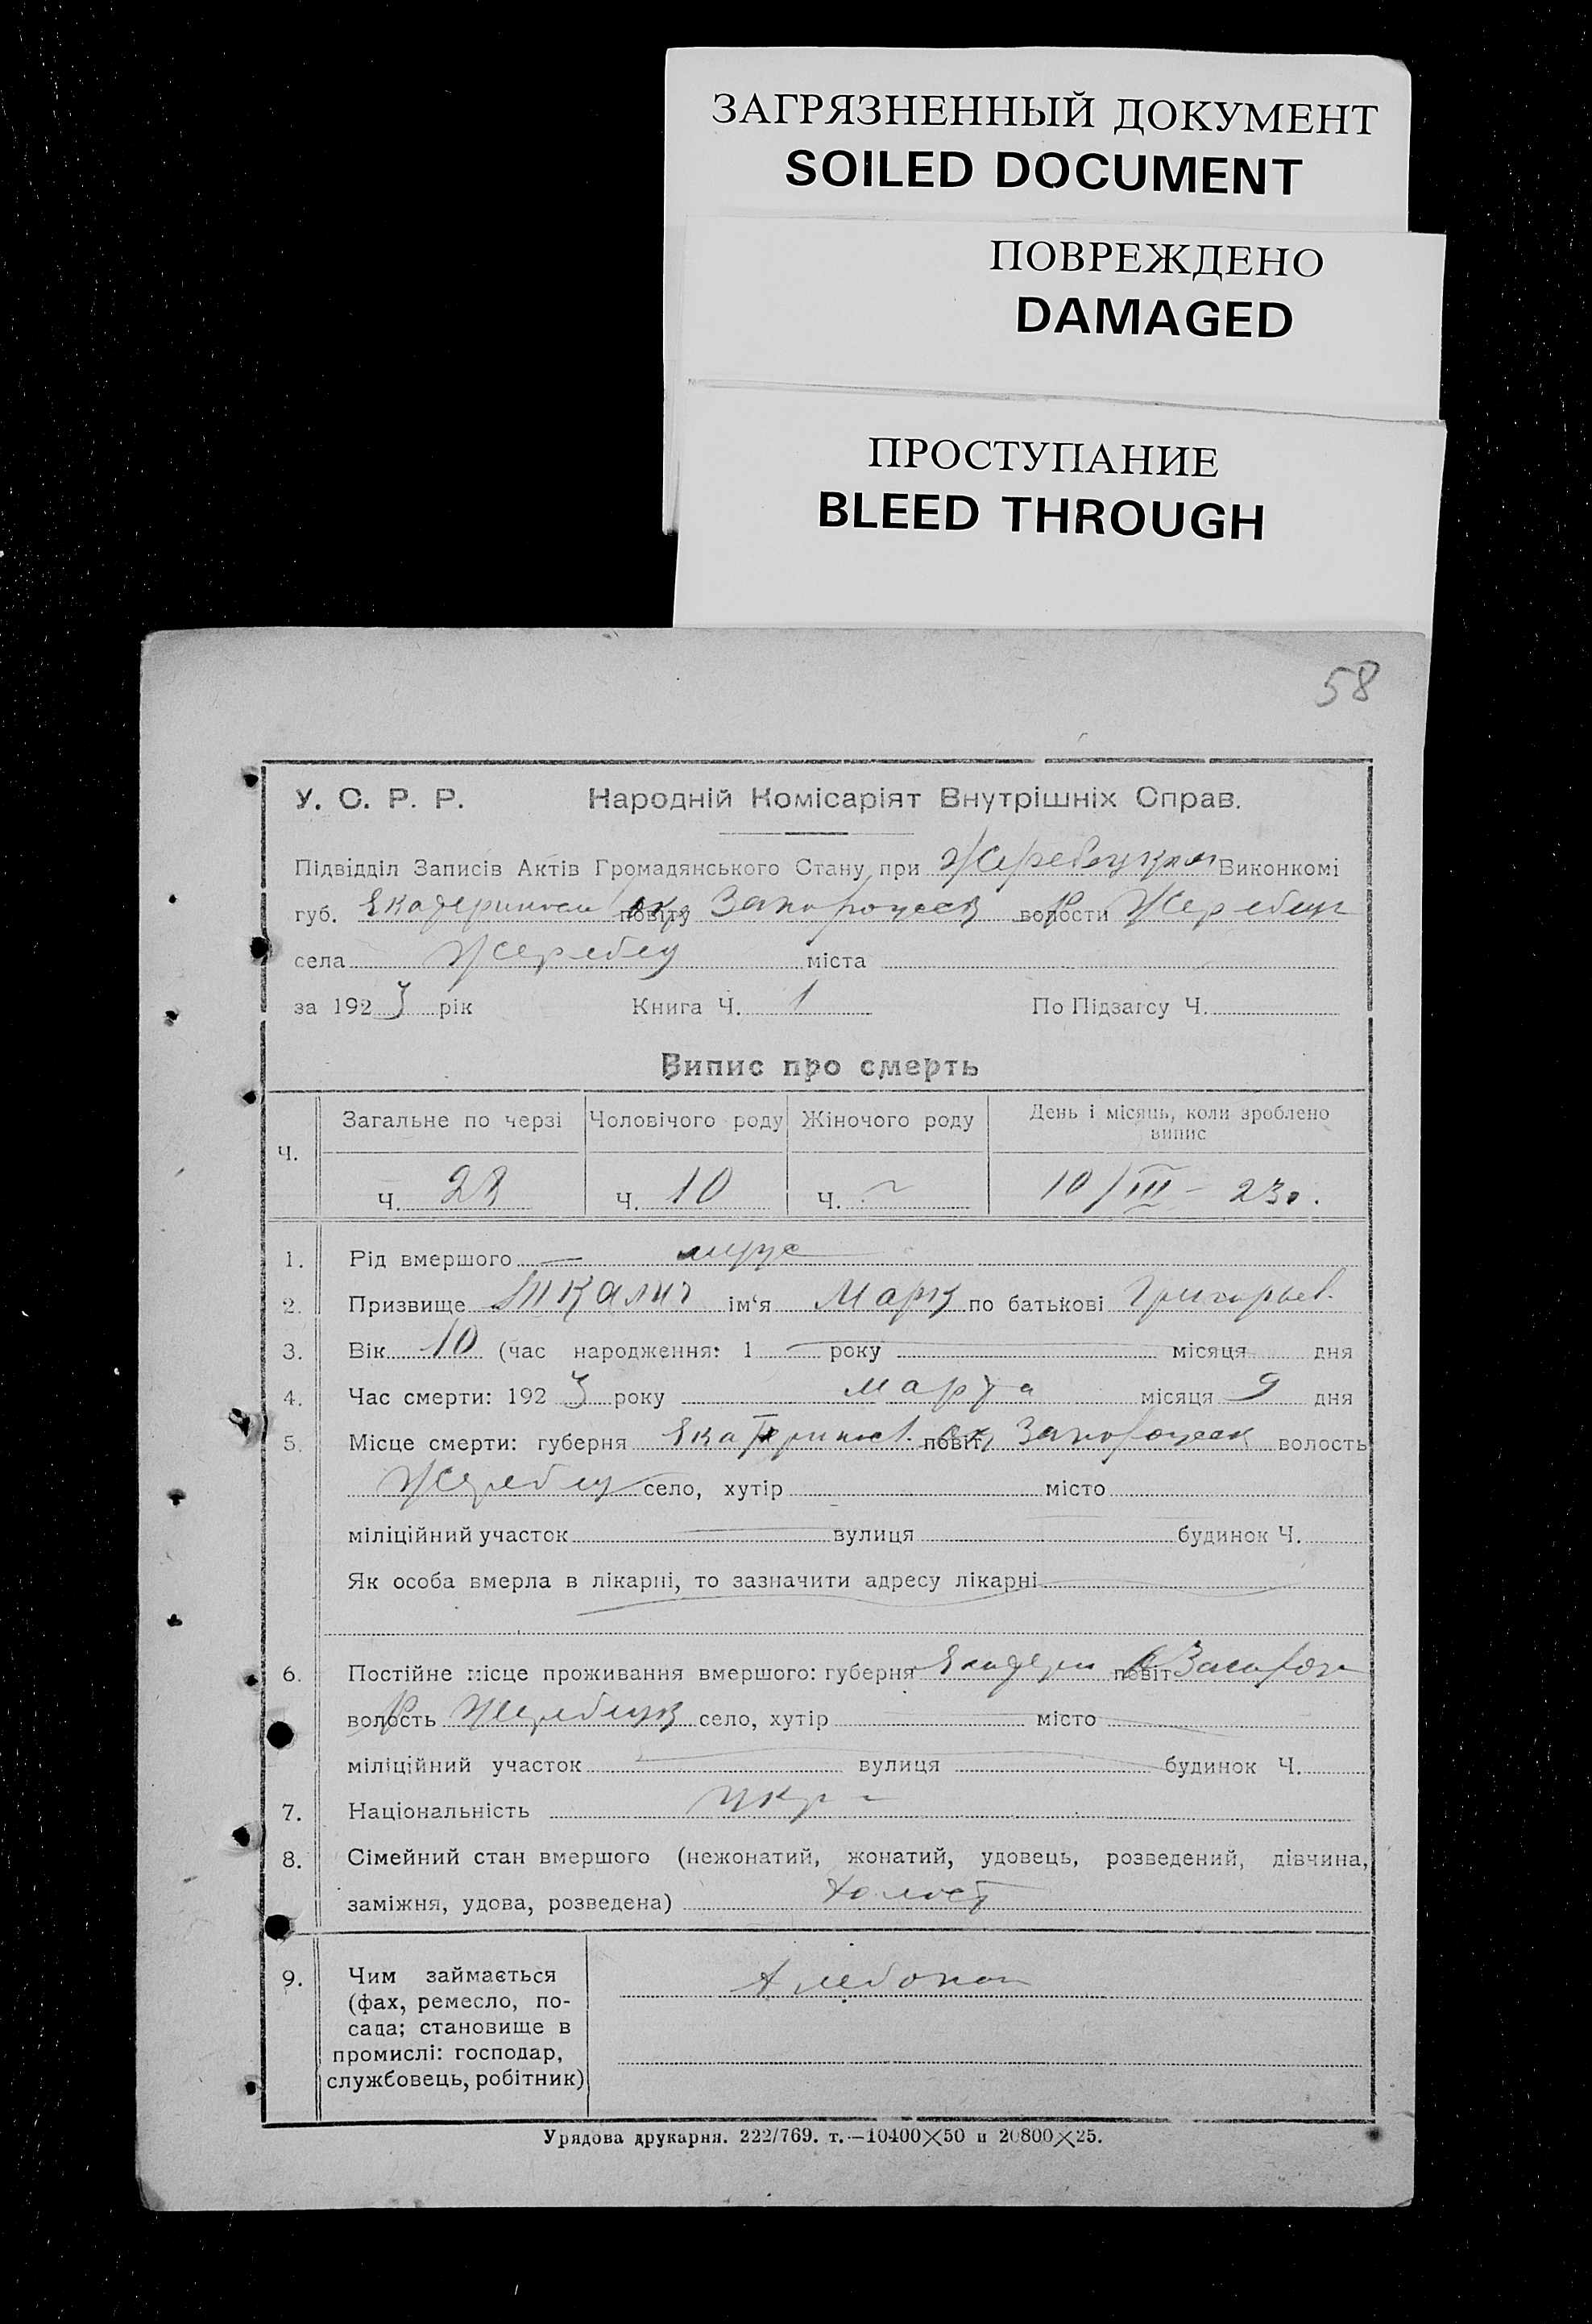 ЗАГРЯЗНЕННЫЙ ДОКУМЕНТ
SOILED DOCUMENT
ПОВРЕЖДЕНО
DAMAGED
ПРОСТУПАНИЕ
BLEED THROUGH
58
У. С. Р. Р. Народній Комісаріят Внутрішніх Справ.
Підвідділ Записів Актів Громадянського Стану при Жеребецком Виконкомі
губ. Екатериносл повіту окр Запорожск волости Р Жеребец
села Жеребец міста
за 1923 рік Книга Ч. 1 По Підзагсу Ч.
Випис про смерть
Ч. Загальне по черзі Чоловічого роду Жіночого роду День і місяць, коли зроблено випис
Ч. 28 Ч. 10 Ч. 10/III - 23г.
1. Рід вмершого — муж
2. Призвище ім‘я Марк по батькові Григорьев.
3. Вік 10 (час народження: 1 року місяця дня
4. Час смерти: 1923 року марта місяця 9 дня
5. Місце смерти: губерня Екатериносл. повіт ок Запорожск волость
Жеребец село, хутір місто
міліційний участок вулиця будинок Ч.
Як особа вмерла в лікарні, то зазначити адресу лікарні
6. Постійне місце проживання вмершого: губерня Екатер повіт Запорож
волость Р Жеребецк село, хутір місто
міліційний участок вулиця будинок Ч.
7. Національність укр
8. Сімейний стан вмершого (нежонатий, жонатий, удовець, розведений, дівчина,
заміжня, удова, розведена) холост
9. Чим займається хлебопаш
(фах, ремесло, по-
сада; становище в
промислі: господар,
службовець, робітник)
Урядова друкарня. 222/769. т.—10400×50 и 20800×25.